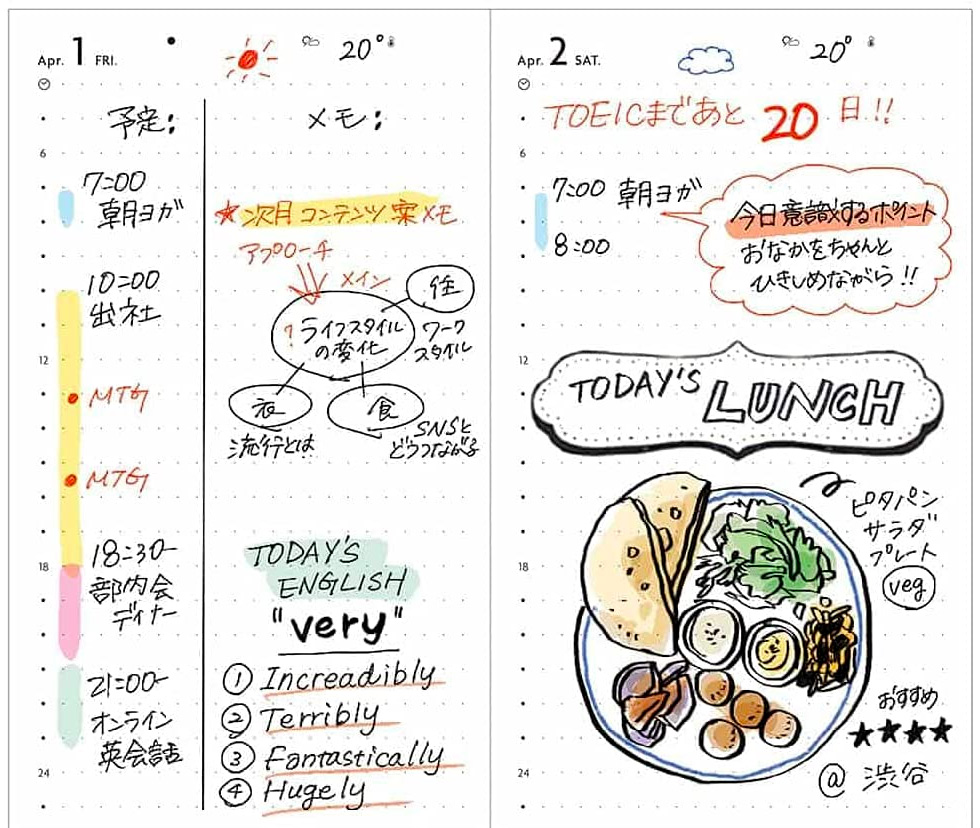 Apr. 1 FRI.
20°
予定:
6
7:00
朝ヨガ
10:00
出社
12
MTG
MTG
18:30-
18
部内会
ディナー
21:00-
オンライン
英会話
24
メモ:
★次月コンテンツ案メモ
アプローチ
メイン
住
?ライフスタイル
の変化
ワーク
スタイル
衣
食
流行とは
SNSと
どうつながる
TODAY'S
ENGLISH
"very"
① Increadibly
② Terribly
③ Fantastically
④ Hugely
Apr. 2 SAT.
20°
TOEICまであと 20 日!!
6
7:00 朝ヨガ
8:00
今日意識するポイント
おなかをちゃんと
ひきしめながら!!
12
TODAY'S LUNCH
ピタパン
サラダ
プレート
veg
18
おすすめ
★★★★
@ 渋谷
24